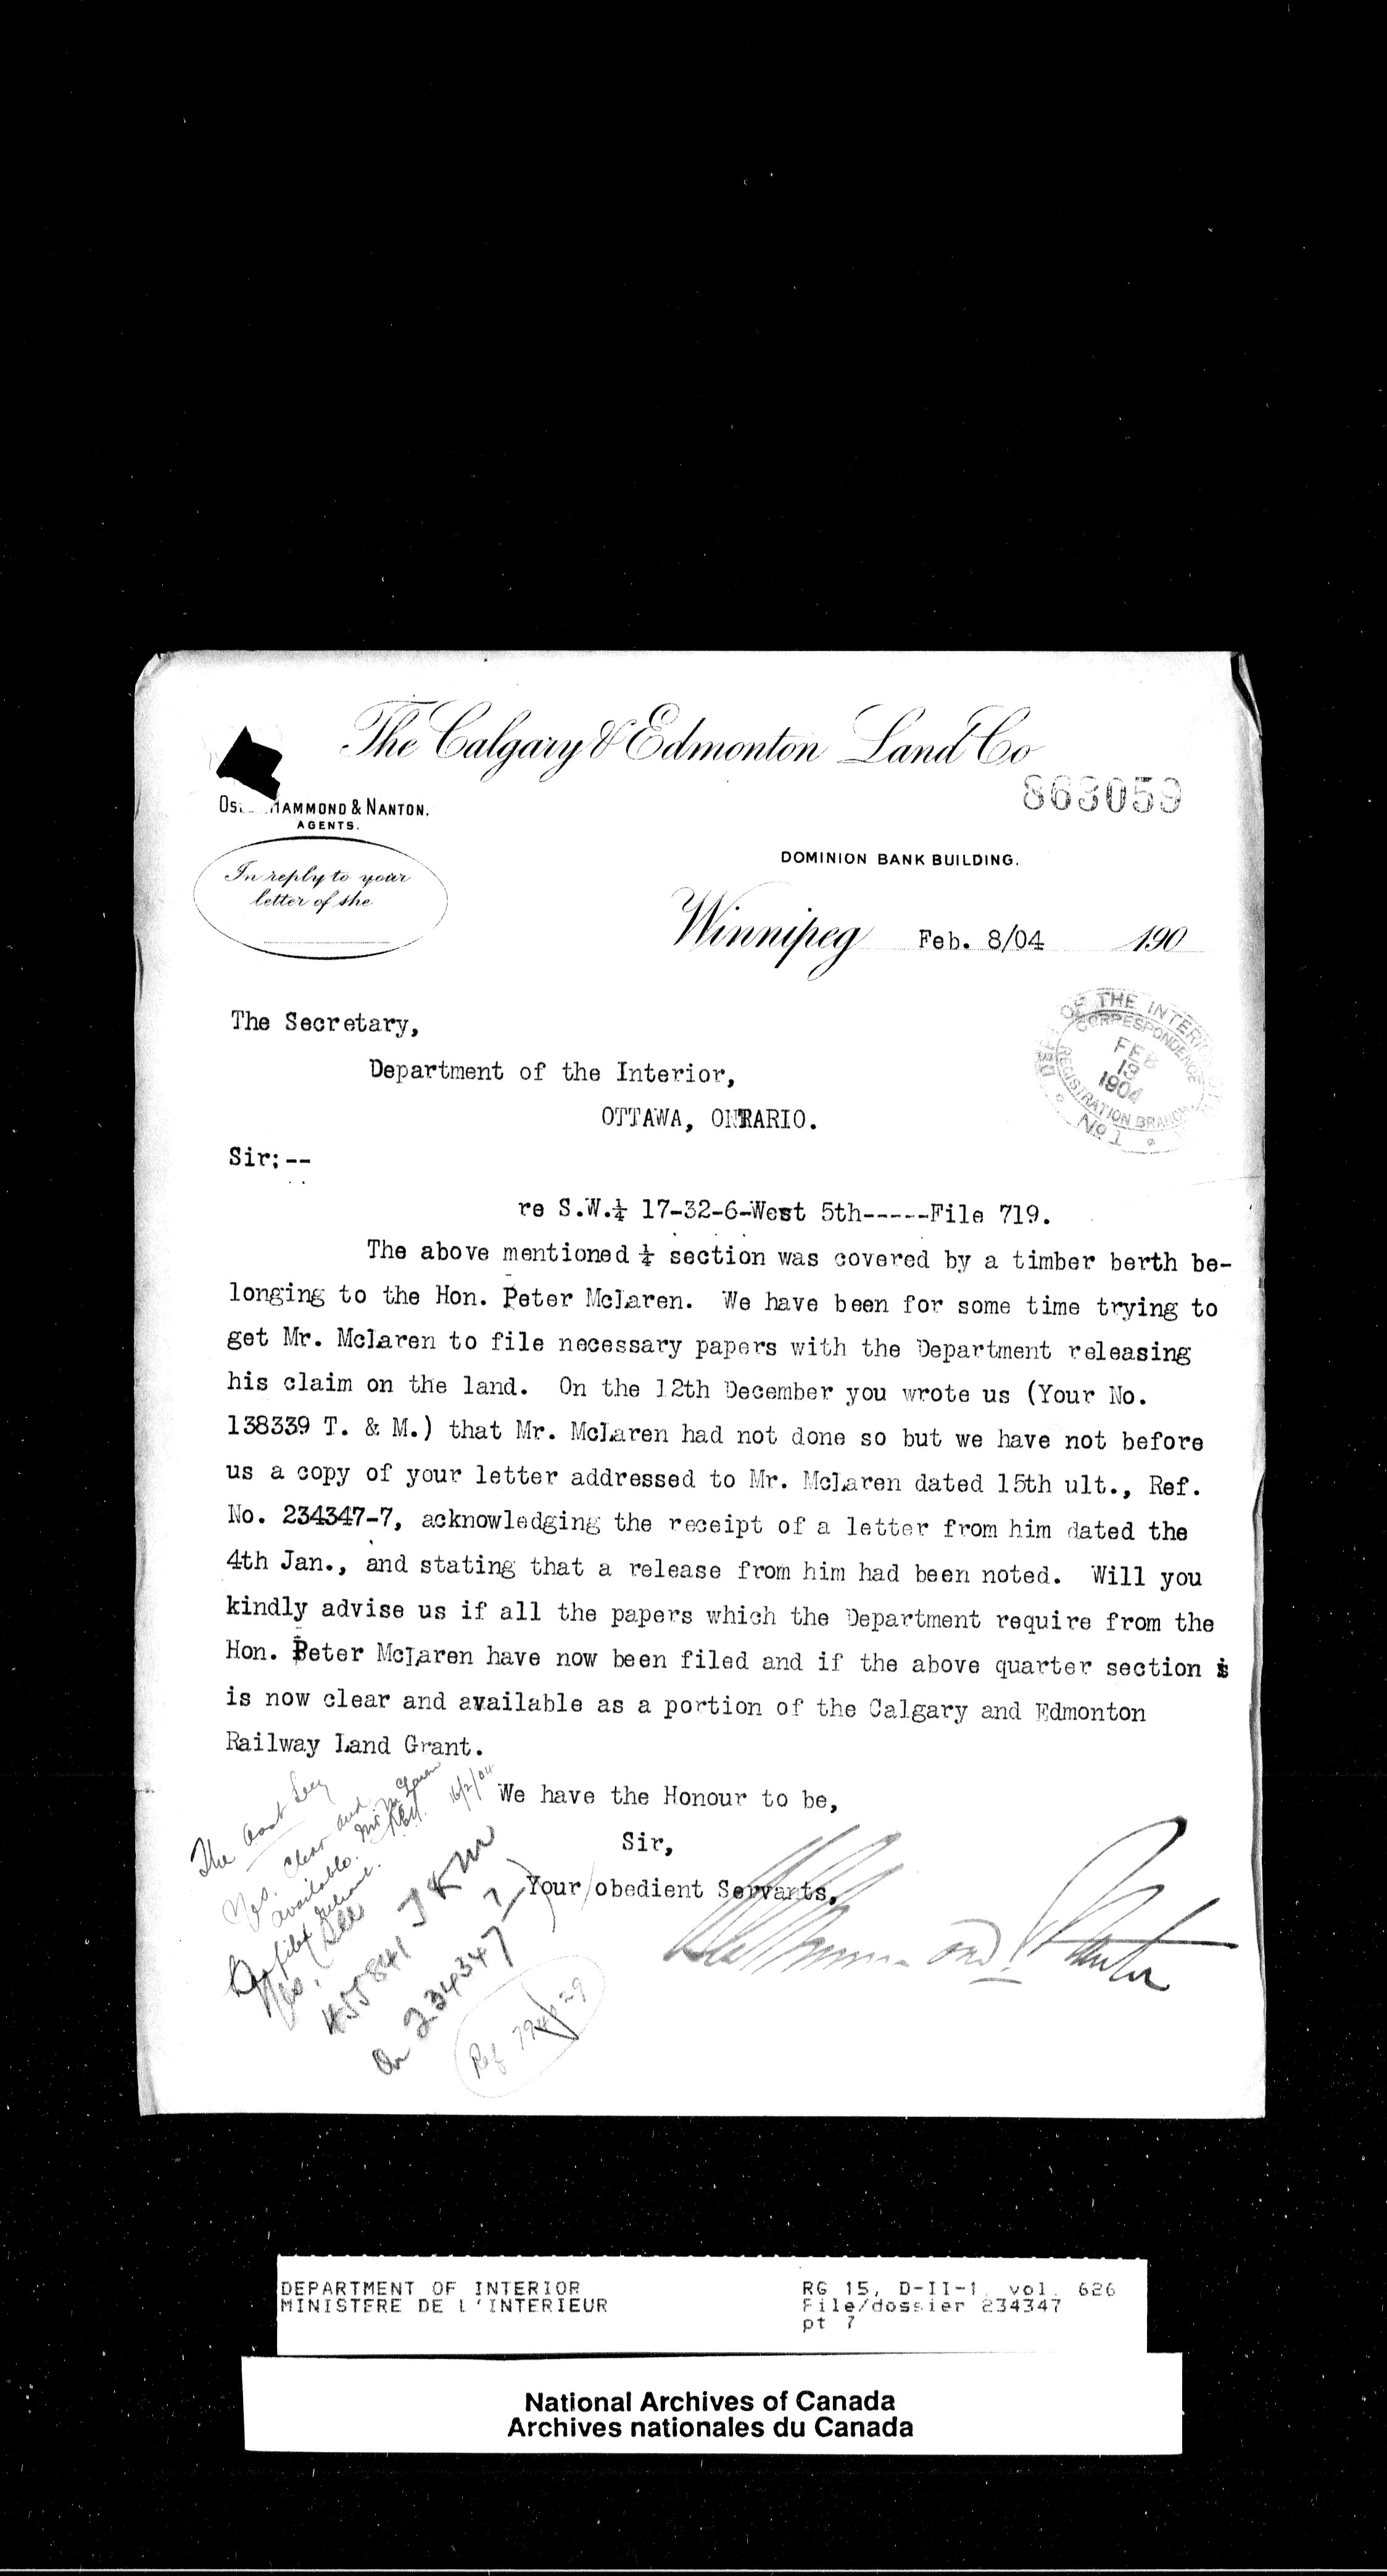 The Calgary & Edmonton Land Co
863059
HAMMOND & NANTON.
AGENTS.
In reply to your
letter of the
DOMINION BANK BUILDING.
Winnipeg Feb. 8/04 190
DEPT OF THE INTERIOR
CORRESPONDENCE
FEB
13
1904
REGISTRATION BRANCH
No 1
The Secretary,
Department of the Interior,
OTTAWA, ONTARIO.
Sir;--
re S.W.¼ 17-32-6-West 5th-----File 719.
The above mentioned ¼ section was covered by a timber berth be-
longing to the Hon. Peter McLaren. We have been for some time trying to
get Mr. McLaren to file necessary papers with the Department releasing
his claim on the land. On the 12th December you wrote us (Your No.
138339 T. & M.) that Mr. McLaren had not done so but we have not before
us a copy of your letter addressed to Mr. McLaren dated 15th ult., Ref.
No. 234347-7, acknowledging the receipt of a letter from him dated the
4th Jan., and stating that a release from him had been noted. Will you
kindly advise us if all the papers which the Department require from the
Hon. Peter McLaren have now been filed and if the above quarter section is
is now clear and available as a portion of the Calgary and Edmonton
Railway Land Grant.
We have the Honour to be,
Sir,
Your obedient Servants,
and Nanton
The Asst Secy
Yes. Clear and
available. Mr. McLaren
filed release. 16/2/04
Yes. (See
855841 JKM
On 234347-7)
Ref 794929
DEPARTMENT OF INTERIOR
MINISTERE DE L'INTERIEUR
RG 15, D-II-1, vol. 626
File/dossier 234347
pt 7
National Archives of Canada
Archives nationales du Canada